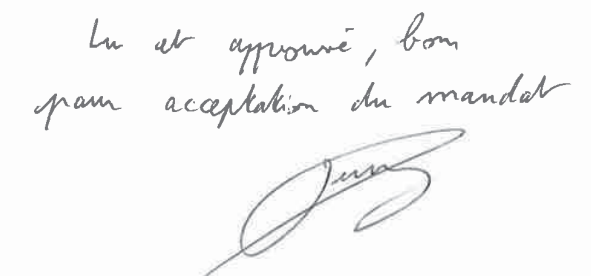 Lu et approuvé, bon
pour acceptation du mandat